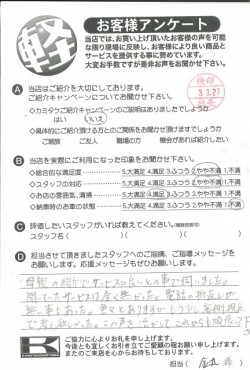 軽
お客様アンケート
当店では、お買い上げ頂いたお客様の声を可能
な限り現場に反映し、お客様により良い商品と
サービスを提供する事に努めています。
大変お手数ですが是非お声をお聞かせ下さい。
検印
3.3.27
A 当店はご紹介を大切にしております。
ご紹介キャンペーンについてお聞かせ下さい。
◇カミタケご紹介キャンペーンのご説明はありましたでしょうか
はい いいえ
◇具体的にご紹介頂ける方とのご関係をお聞かせ頂けますでしょうか
ご家族 ご友人 職場の方 機会があれば紹介したい
B 当店を実際にご利用になった印象をお聞かせ下さい。
◇総合的な満足度 5.大満足 4.満足 3.ふつう 2.やや不満 1.不満
◇スタッフの対応 5.大満足 4.満足 3.ふつう 2.やや不満 1.不満
◇お店の雰囲気、清掃 5.大満足 4.満足 3.ふつう 2.やや不満 1.不満
◇納車時のお車の状態 5.大満足 4.満足 3.ふつう 2.やや不満 1.不満
C 評価したいスタッフがいれば教えてください。(複数回答可)
スタッフ名( )( )( )
D 担当させて頂きましたスタッフへのご指摘、ご指導メッセージを
お願いします。応援メッセージもぜひお願いします。
母親の紹介でサービスは良いとの事で伺いました。
聞いてたサービスは全く無かった。電話の折返しが
K
ご協力に心よりお礼を申し上げます。
今後とも宜しくお引き立てご愛顧の程お願い申し上げます。
またのご来店を心からお待ちしております。
担当( )